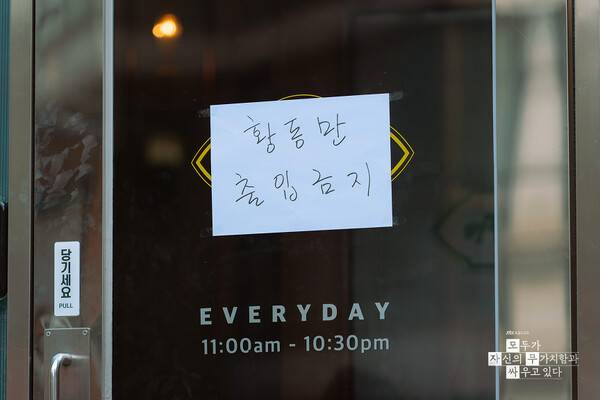 황동만
출입금지
당기세요
PULL
EVERYDAY
11:00am - 10:30pm
모두가
자신의 무가치함과
싸우고 있다